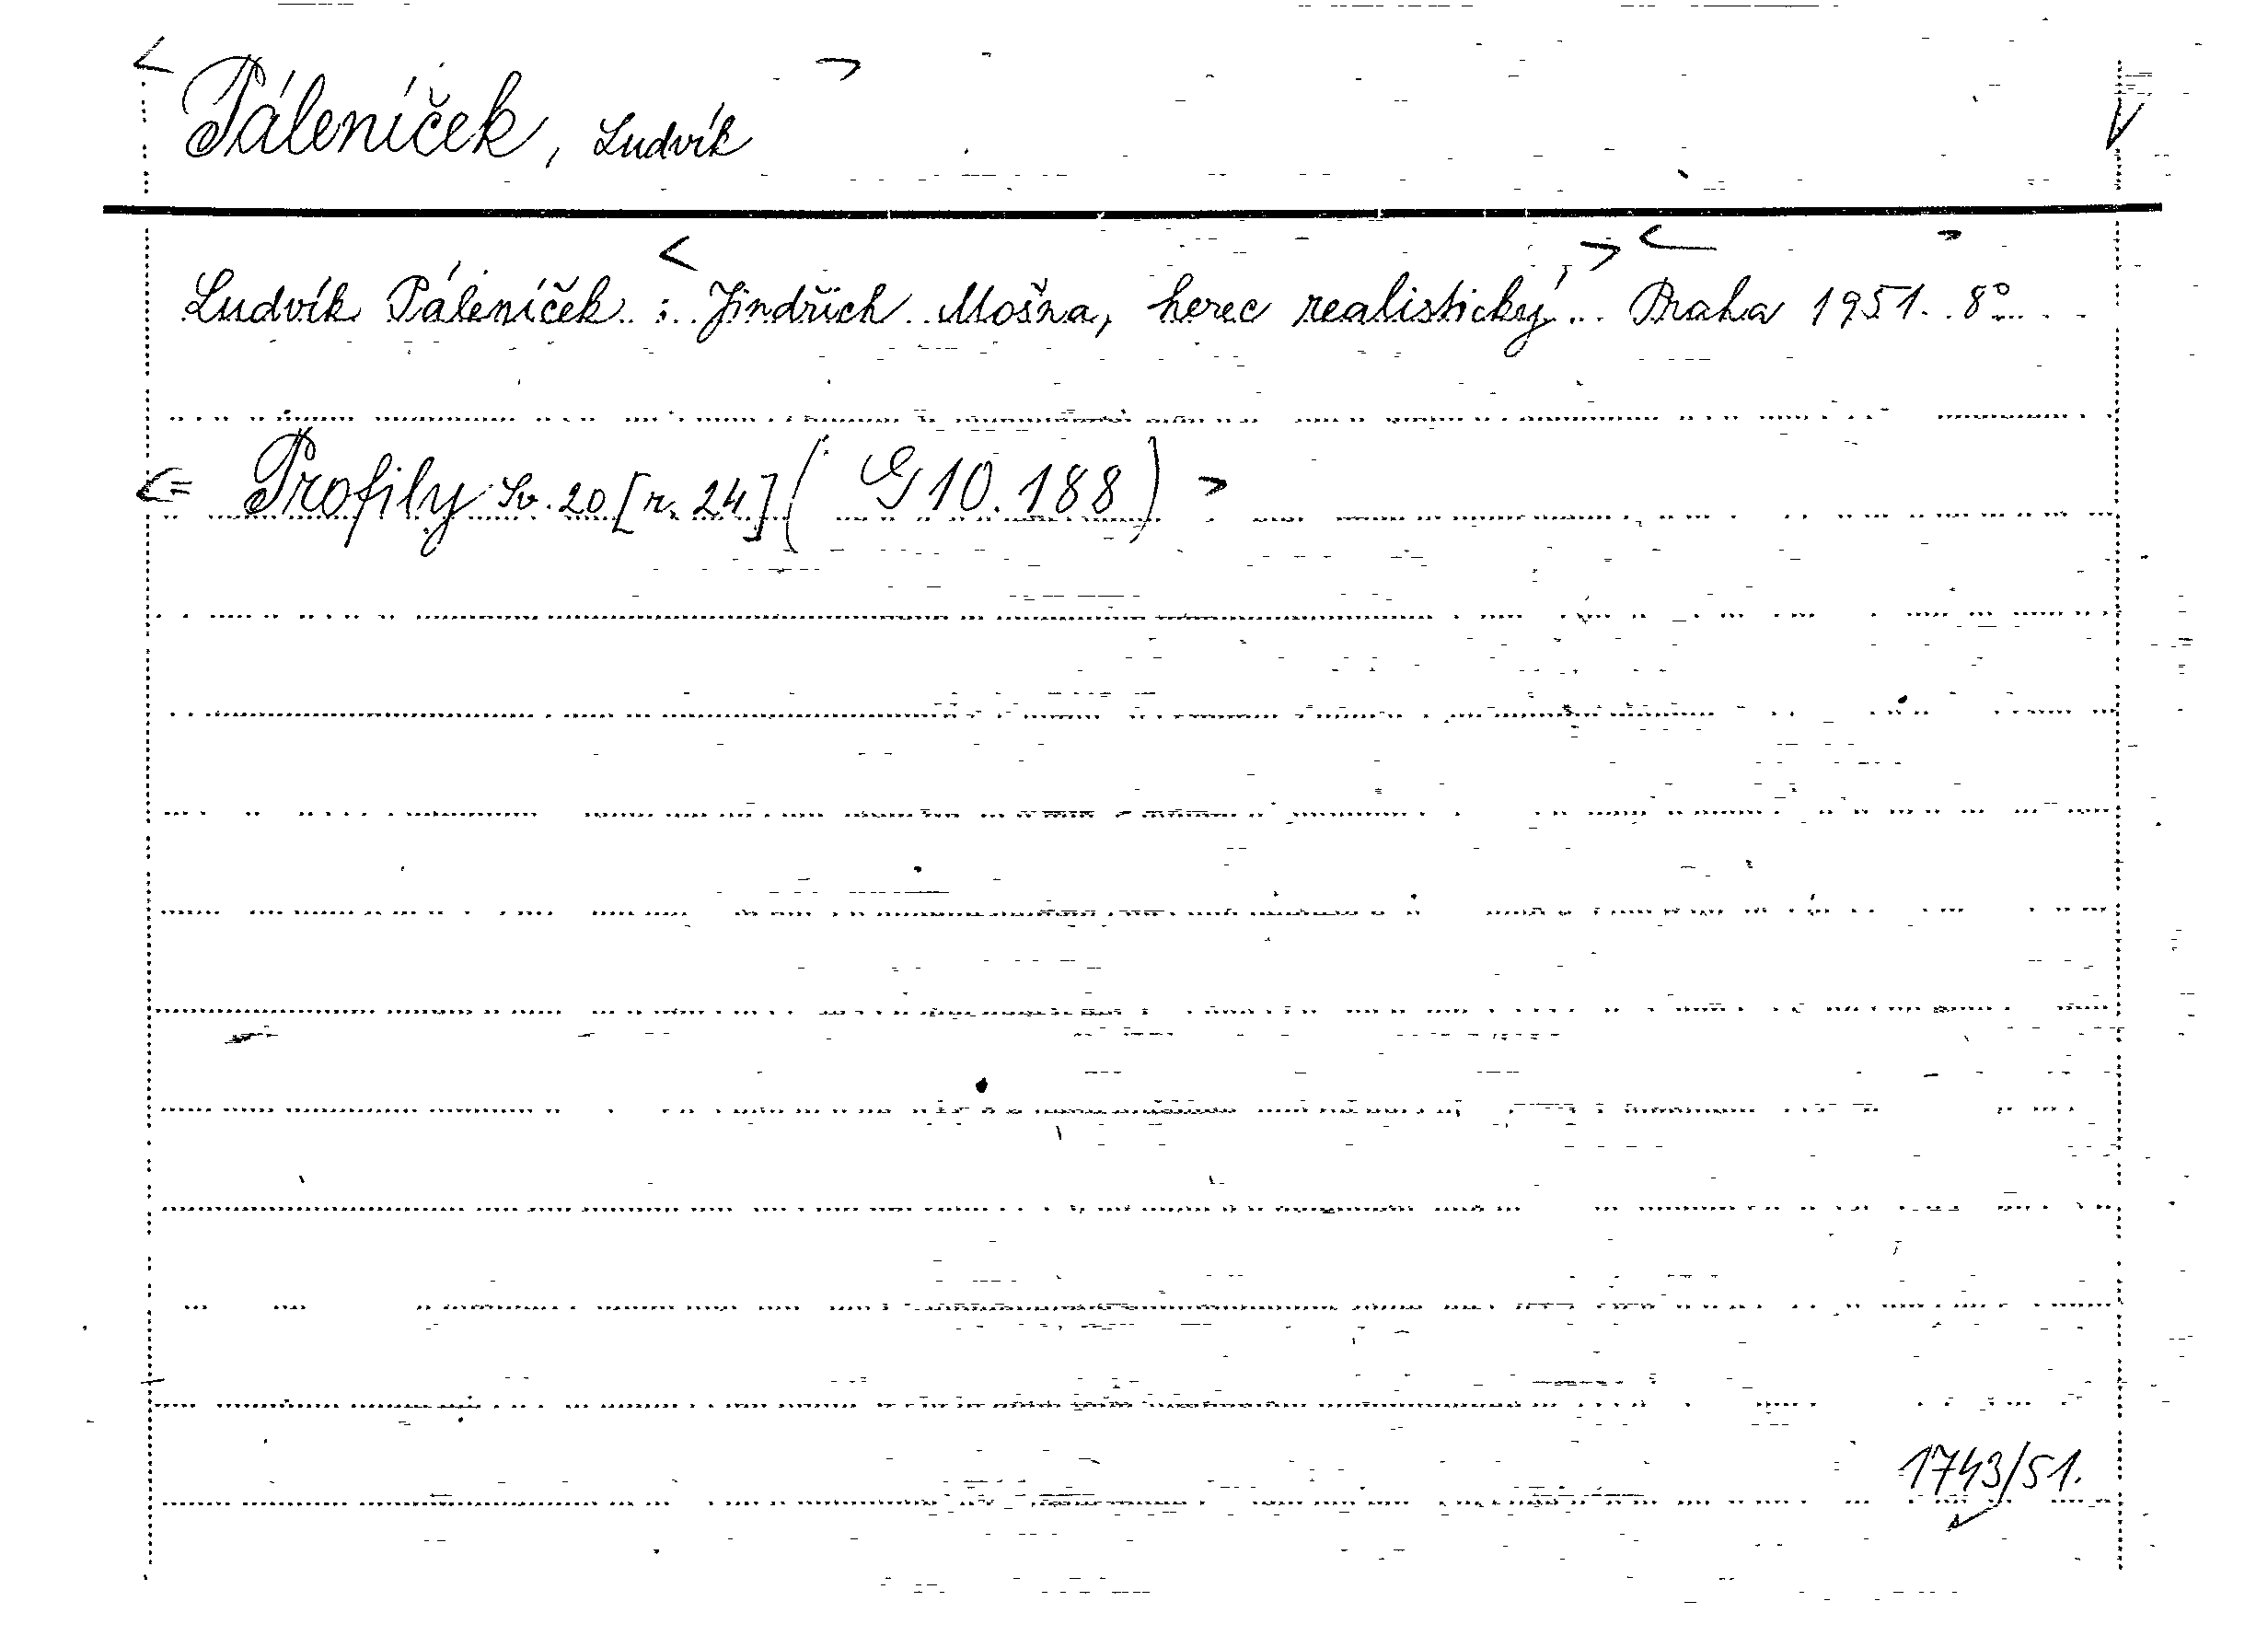 Páleníček, Ludvík
Ludvík Páleníček : Jindřich Mošna, herec realistický. Praha 1951. 8°
= Profily Sv. 20 [r. 24] ( G 10.188 )
1743/51.